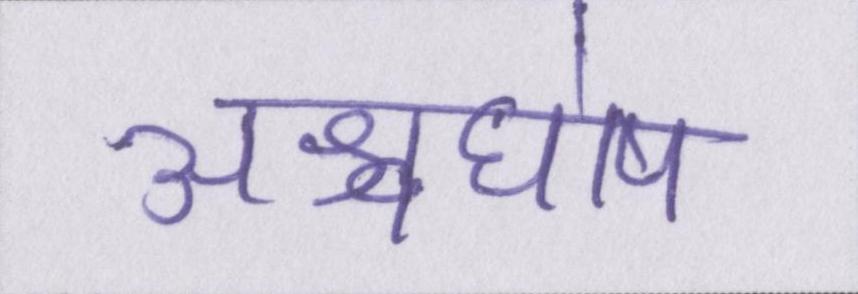 अश्वघोष